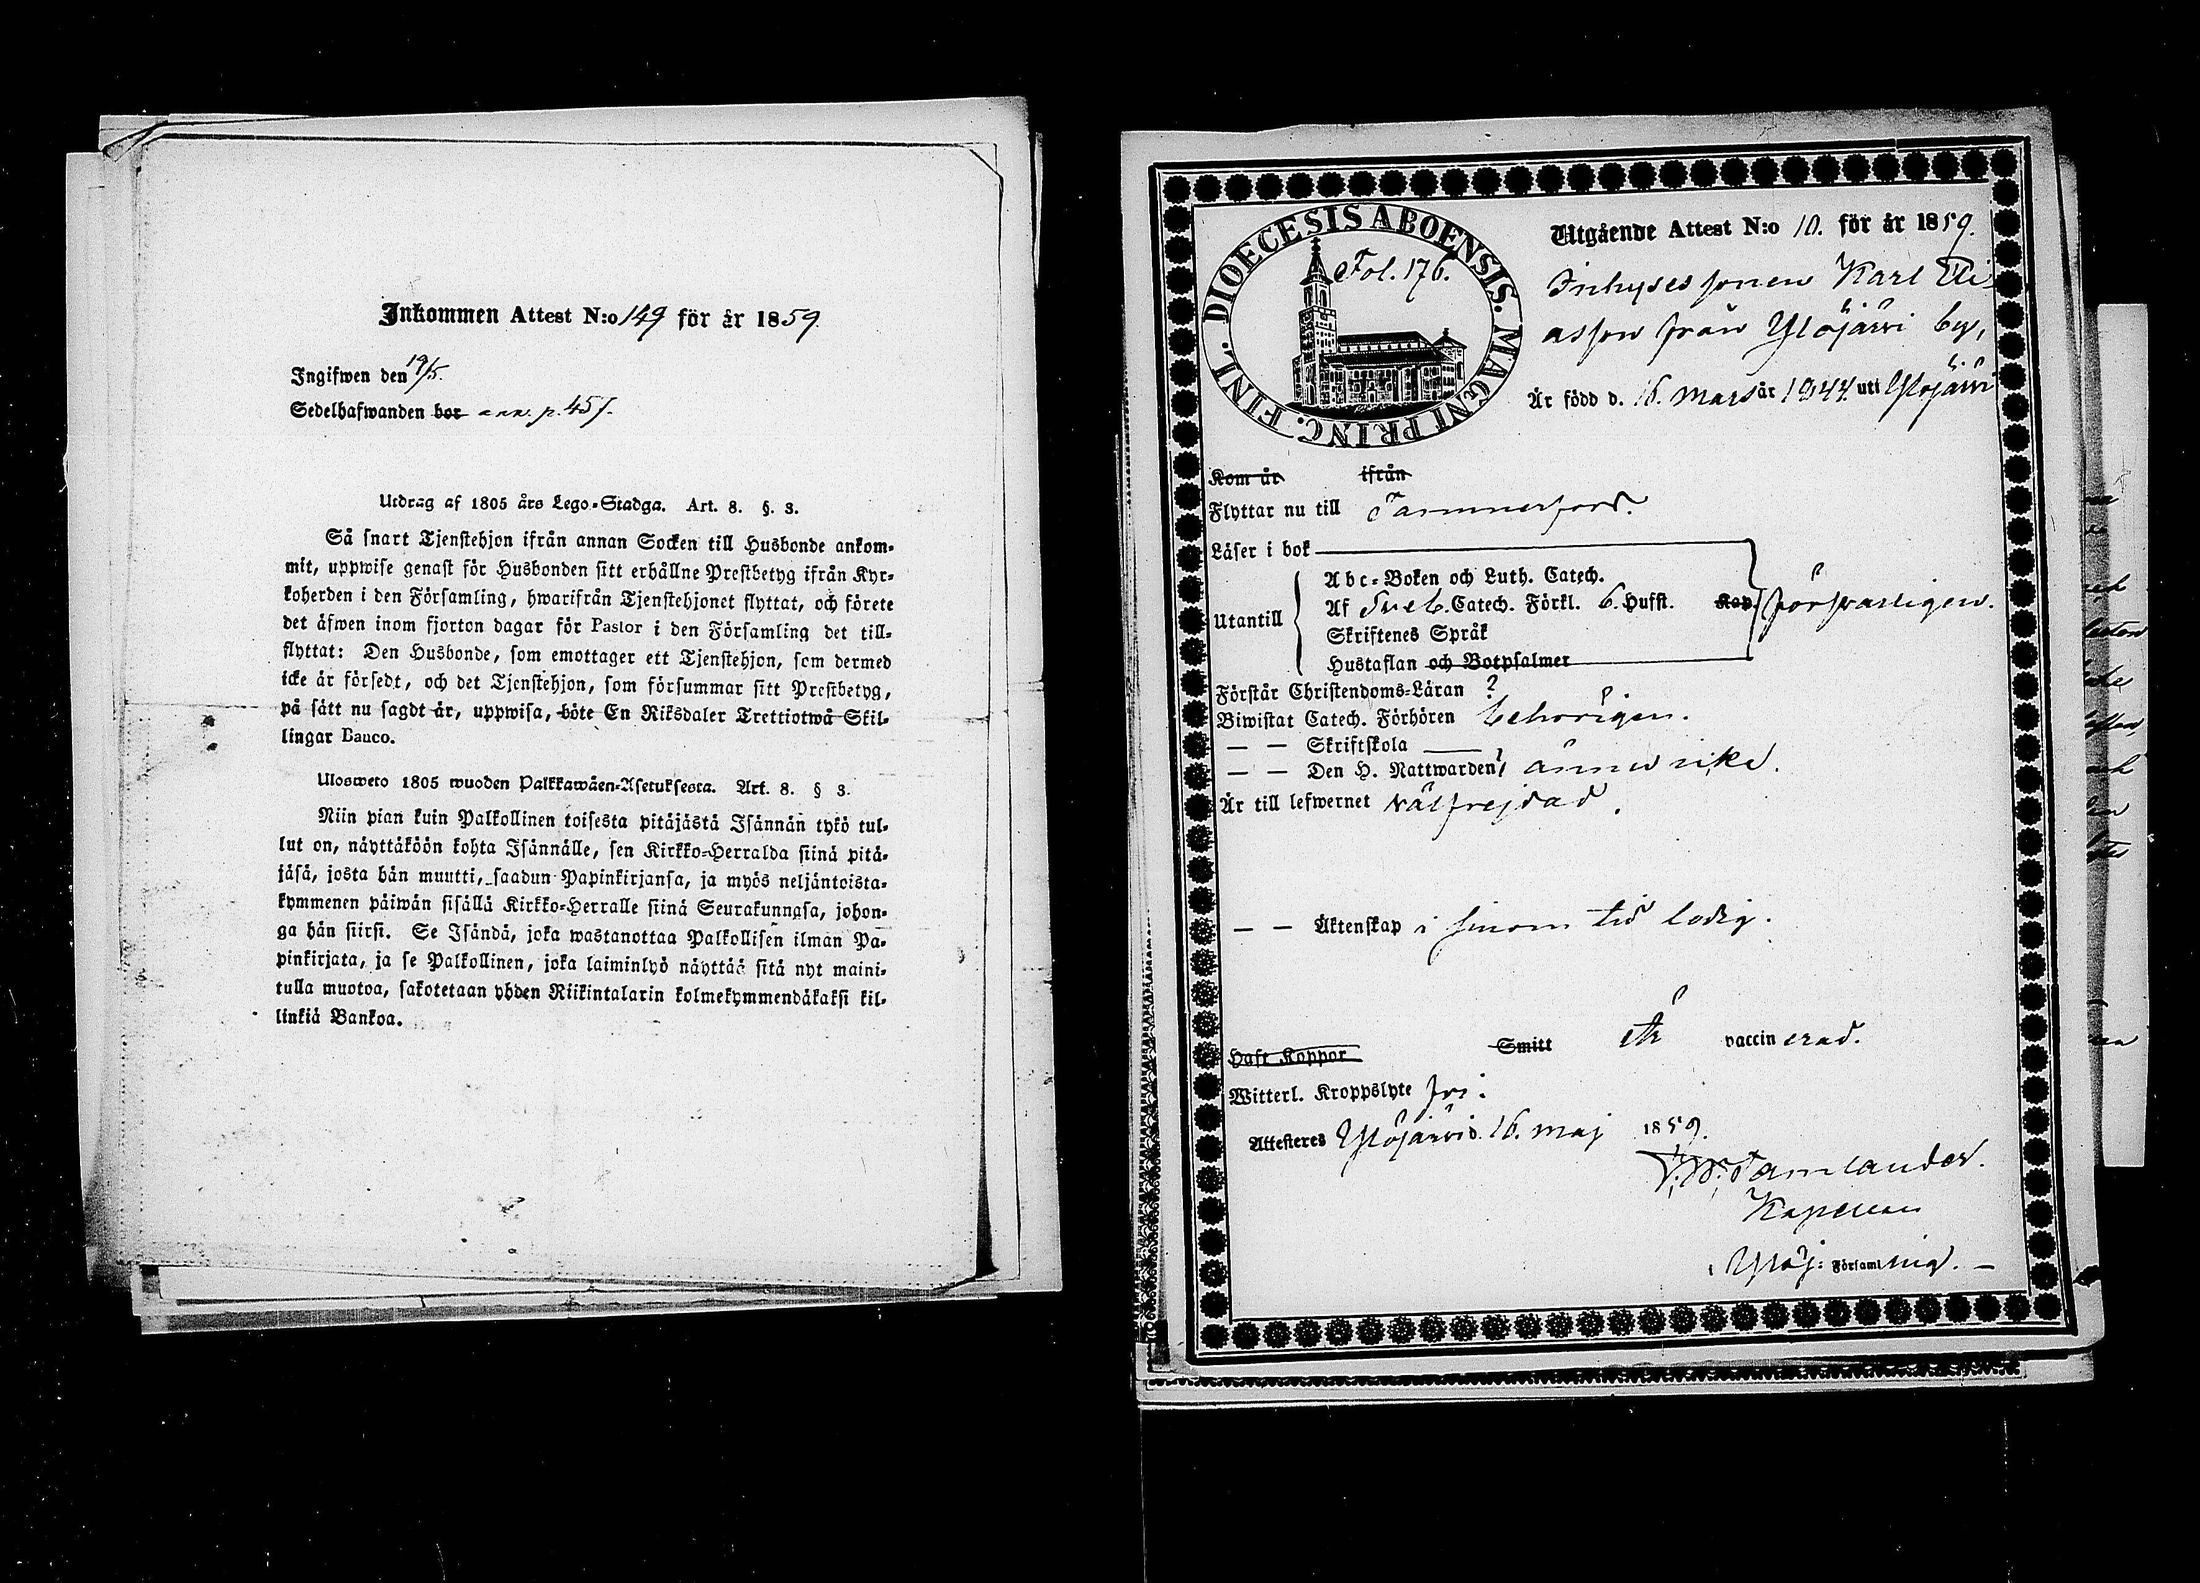 Inkommen Attest N:o 149 för år 1859.
Ingifwen den 19/5.
Sedelhafwanden bor ann. p. 457.
Utdrag af 1805 års Lego-Stadga. Art. 8. §. 3.
Så snart Tjenstehjon ifrån annan Socken till Husbonde ankom-
mit, uppwise genast för Husbonden sitt erhållne Prestbetyg ifrån Kyr-
koherden i den Församling, hwarifrån Tjenstehjonet flyttat, och förete
det äfwen inom fjorton dagar för Pastor i den Församling det till-
flyttat: Den Husbonde, som emottager ett Tjenstehjon, som dermed
icke är försedt, och det Tjenstehjon, som försummar sitt Prestbetyg,
på sätt nu sagdt är, uppwisa, böte En Riksdaler Trettiotwå Skil-
lingar Banco.
Ulosweto 1805 wuoden Palkkawäen-Asetuksesta. Art. 8. § 3.
Niin pian kuin Palkollinen toisesta pitäjästä Isännän tykö tul-
lut on, näyttäköön kohta Isännälle, sen Kirkko-Herralda siinä pitä-
jäsä, josta hän muutti, saadun Papinkirjansa, ja myös neljäntoista-
kymmenen päiwän sisällä Kirkko-Herralle siinä Seurakunnasa, johon-
ga hän siirsi. Se Isändä, joka wastanottaa Palkollisen ilman Pa-
pinkirjata, ja se Palkollinen, joka laiminlyö näyttää sitä nyt maini-
tulla muotoa, sakotetaan yhden Riikintalarin kolmekymmendäkaksi kil-
linkiä Bankoa.
DIOECESIS ABOENSIS. MAGNI PRINC. FINL.
Fol. 176.
Utgående Attest N:o 10. för år 1859.
Inhyses sonen Karl Eli
asson från Ylöjärvi by,
Är född d. 16. Mars år 1844. uti Ylöjärvi
Kom år ifrån
Flyttar nu till Tammerfors.
Läser i bok
Abc-Boken och Luth. Catech.
Utantill Af Sveb. Catech. Förkl. 6. Hufst. Kap. försvarligen.
Skriftenes Språk
Hustaflan och Botpsalmer
Förstår Christendoms-Läran ?
Biwistat Catech. Förhören behörigen.
— — Skriftskola
— — Den H. Nattwarden, ännu icke.
Är till lefwernet välfrejdad.
— — Äktenskap i sinom tid ledig.
Haft Koppor Smitt är vaccinerad.
Witterl. Kroppslyte fri.
Attesteras Ylöjärvi d. 16. Maj 1859.
Tamlander.
Kapellan
i Ylöj: Församling. —